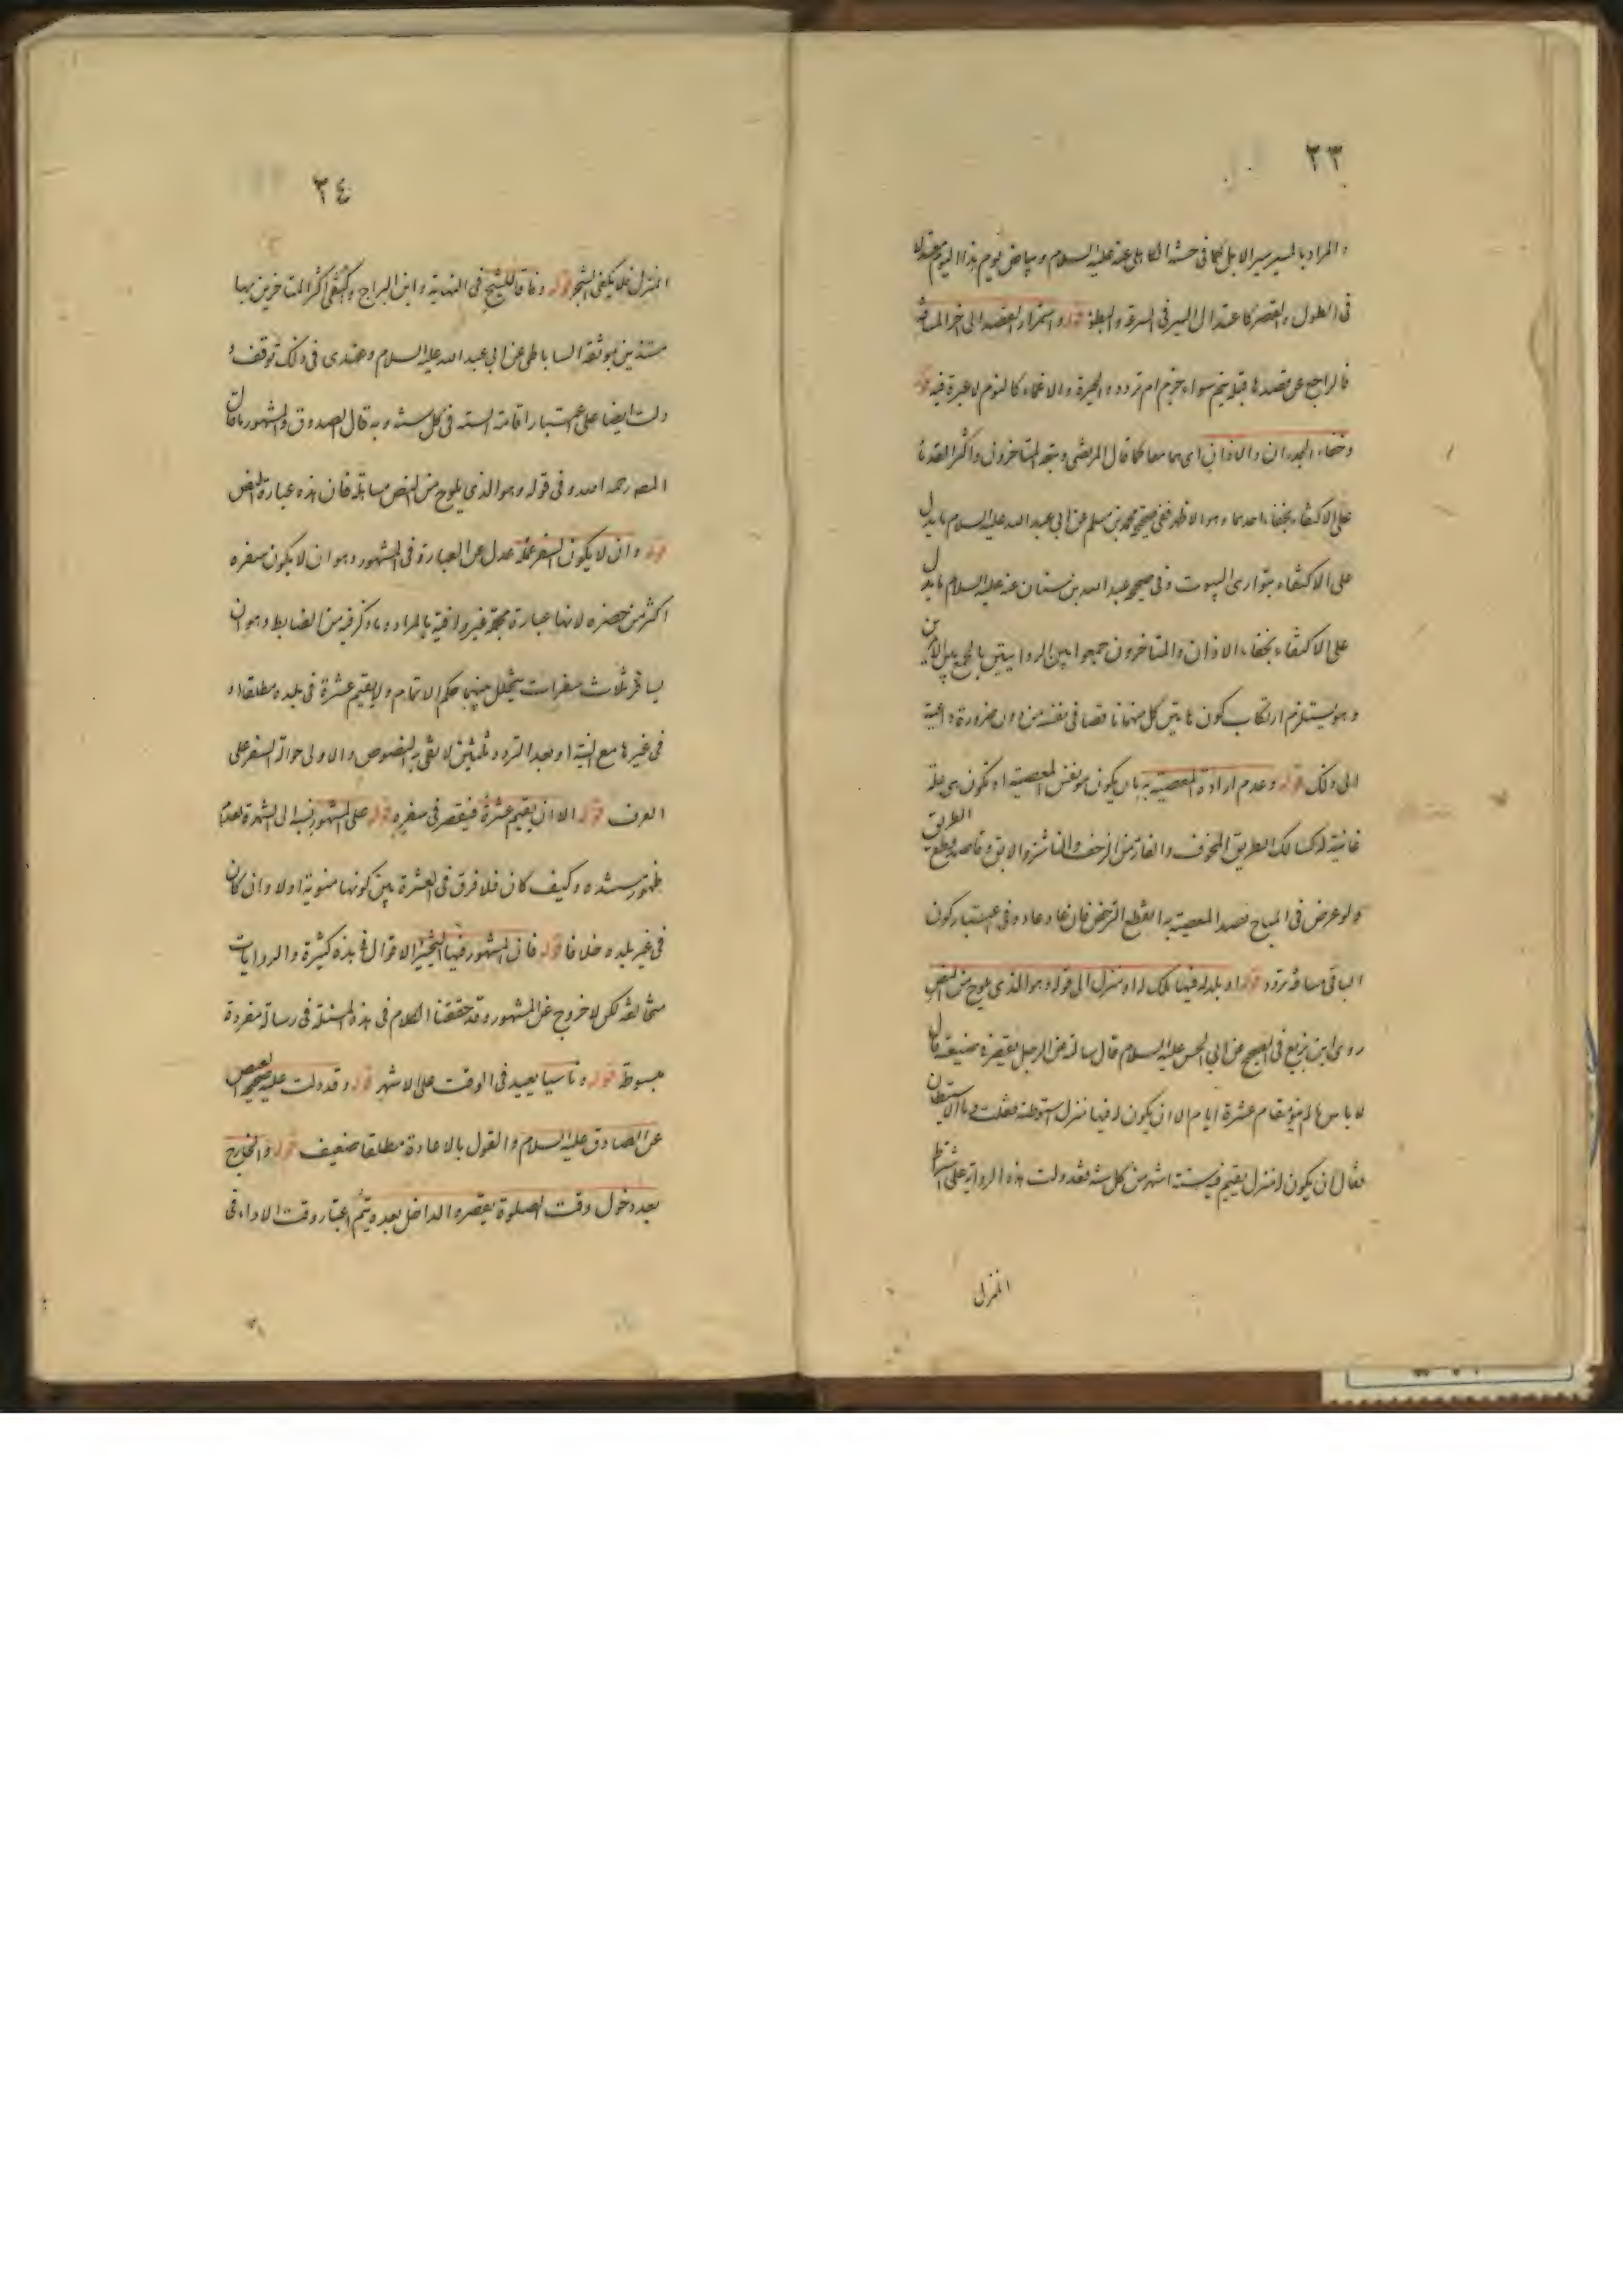 ٣٣
والمراد بالمسير سير الابل كما في حسنة الكاهلي عنه عليه السلام وبياض يوم هذا اليوم معتدلة
في الطول والقصر كاعتدال السير في السرعة والبطؤ قوله واستمرار القصد الى اخر المسافة
فالراجع عن قصدها قبلا يتم سواء جزم ام تردد والحيرة والاغماء كالنوم لا عبرة فيه قوله
وخفاء الجدران والاذان اي هما معا كما قال المرتضى وتبعه المتاخرون واكثر القدماء
على الاكتفاء بخفاء احدهما وهو الاظهر ففي صحيح محمد بن مسلم عن ابي عبد الله عليه السلام ما يدل
على الاكتفاء بتواري البيوت وفي صحيح عبد الله بن سنان عنه عليه السلام ما يدل
على الاكتفاء بخفاء الاذان والمتاخرون جمعوا بين الروايتين بالجمع بين الامرين
وهو يستلزم ارتكاب كون هاتين كل منهما ناقصا في نفسه من دون ضرورة داعية
الى ذلك قوله وعدم ارادة المعصية به بان يكون هو نفس المعصية او تكون هي علة
غائية له كسالك الطريق المخوف والفار من الزحف والناشز والابق وقاصد قطع الطريق
ولو عرض في المباح قصد المعصية به انقطع الترخص فان عاد عاد وفي اعتبار كون
الباقي مسافة تردد قوله او بلد له فيها ملك له او منزل الى قوله وهو الذي يلوح من النص
روى ابن بزيع في الصحيح عن ابي الحسن عليه السلام قال سالته عن الرجل يقصر في ضيعته قال
لا باس ما لم ينو مقام عشرة ايام الا ان يكون له فيها منزل استوطنه فقلت وما الاستيطان
فقال ان يكون له منزل يقيم فيه ستة اشهر من كل سنة فقد دلت هذه الرواية على اشتراط
المنزل
٣٤
المنزل فلا يكفي الشجر قوله وفاقا للشيخ في النهاية وابن البراج واكتفى اكثر المتاخرين بها
مستندين بموثقة الساباطي عن ابي عبد الله عليه السلام وعندي في ذلك توقف و
دلت ايضا على اعتبار اقامة الستة في كل سنة وبه قال الصدوق والمشهور ما قال
المص رحمه الله وفي قوله وهو الذي يلوح من النص مساهلة فان هذه عبارة النص
قوله وان لا يكون السفر عمله عدل عن العبارة في المشهور وهو ان لا يكون سفره
اكثر من حضره لانها عبارة مجملة غير وافية بالمراد وما ذكر فيه من الضابط وهو ان
يسافر ثلاث سفرات يتخلل بينها حكم الاتمام ولا يقيم عشرة في بلده مطلقا او
في غيرها مع النية او بعد التردد ثلثين لا تفي به النصوص والاولى حوالة السفر على
العرف قوله الا ان يقيم عشرة فيقصر في سفره قوله على المشهور نسبه الى الشهرة لعدم
ظهور مستنده وكيف كان فلا فرق في العشرة بين كونها منوية اولا وان كان
في غير بلده خلافا قوله فان المشهور فيها التخيير الاقوال في هذه كثيرة والروايات
متخالفة لكن لا خروج عن المشهور وقد حققنا الكلام في هذه المسئلة في رسالة مفردة
مبسوطة قوله وناسيا يعيد في الوقت على الاشهر قوله وقد دلت عليه صحيحة العيص
عن الصادق عليه السلام والقول بالاعادة مطلقا ضعيف قوله والخارج
بعد دخول وقت الصلوة يقصر والداخل بعده يتم اعتبار وقت الاداء في